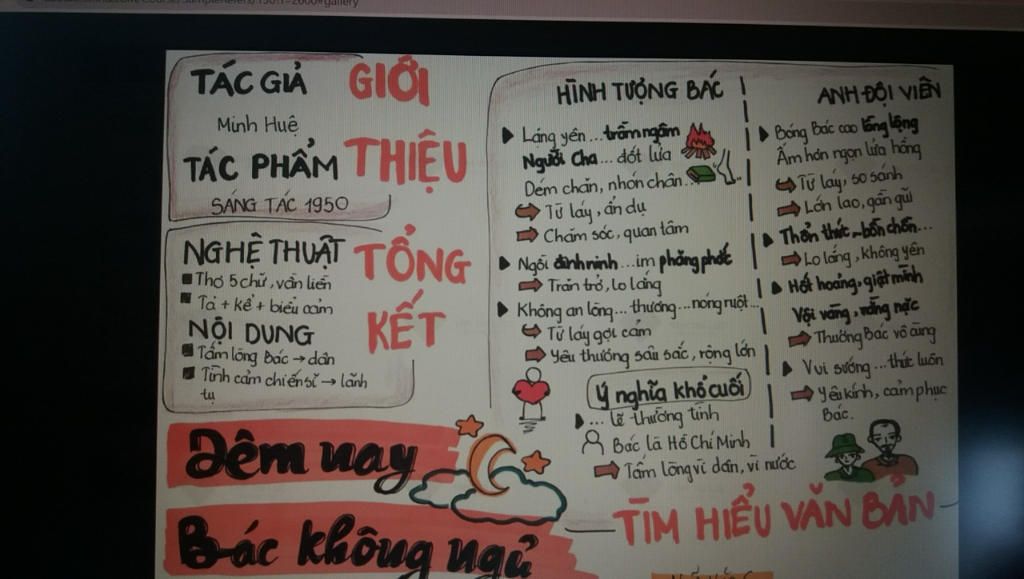 TÁC GIẢ
Minh Huệ
TÁC PHẨM
SÁNG TÁC 1950
GIỚI
THIỆU
NGHỆ THUẬT
Thơ 5 chữ, vần liền
Tả + kể + biểu cảm
NỘI DUNG
Tấm lòng Bác → dân
Tình cảm chiến sĩ → lãnh
tụ
TỔNG
KẾT
HÌNH TƯỢNG BÁC
Lặng yên...trầm ngâm
Người Cha...đốt lửa
Dém chăn, nhón chân...
Từ láy, ẩn dụ
Chăm sóc, quan tâm
Ngồi đinh ninh...im phăng phắc
Trăn trở, lo lắng
Không an lòng...thương...nóng ruột...
Từ láy gợi cảm
Yêu thương sâu sắc, rộng lớn
Ý nghĩa khổ cuối
... lẽ thường tình
Bác là Hồ Chí Minh
Tấm lòng vì dân, vì nước
ANH ĐỘI VIÊN
Bóng Bác cao lồng lộng
Ấm hơn ngọn lửa hồng
Từ láy, so sánh
Lớn lao, gần gũi
Thổn thức - bồn chồn...
Lo lắng, không yên
Hốt hoảng, giật mình
Vội vàng, nằng nặc
Thương Bác vô cùng
Vui sướng...thức luôn
Yêu kính, cảm phục
Bác.
TÌM HIỂU VĂN BẢN
Đêm nay
Bác không ngủ